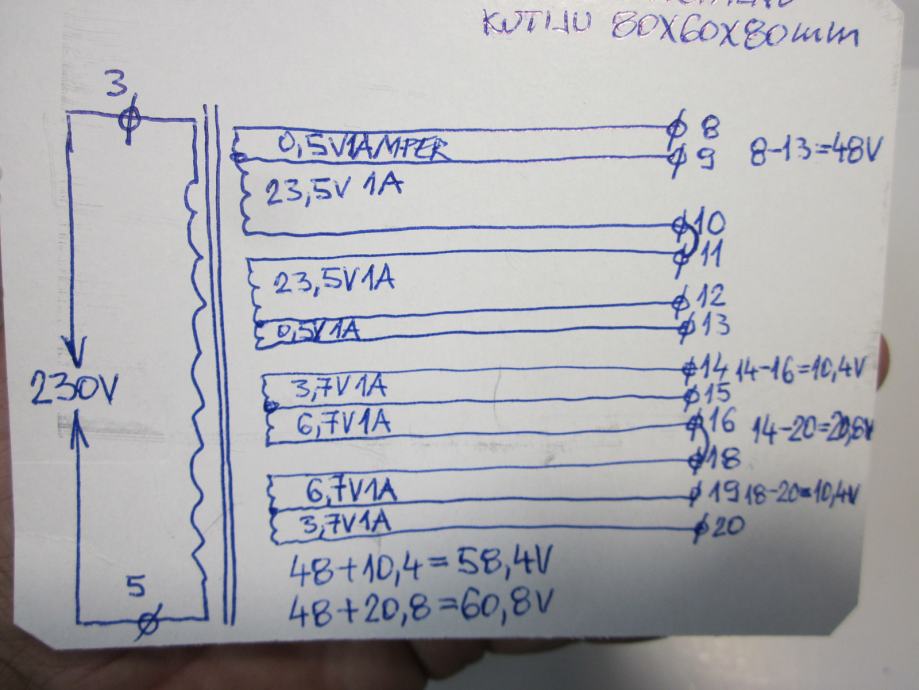 KUTIJU 80X60X80mm
3
0,5V1AMPER
8
9
8-13=48V
23,5V 1A
10
11
23,5V1A
12
0,5V1A
13
230V
3,7V1A
14 14-16=10,4V
15
6,7V1A
16
14-20=20,8V
18
6,7V1A
19 18-20=10,4V
3,7V1A
20
5
48+10,4=58,4V
48+20,8=60,8V